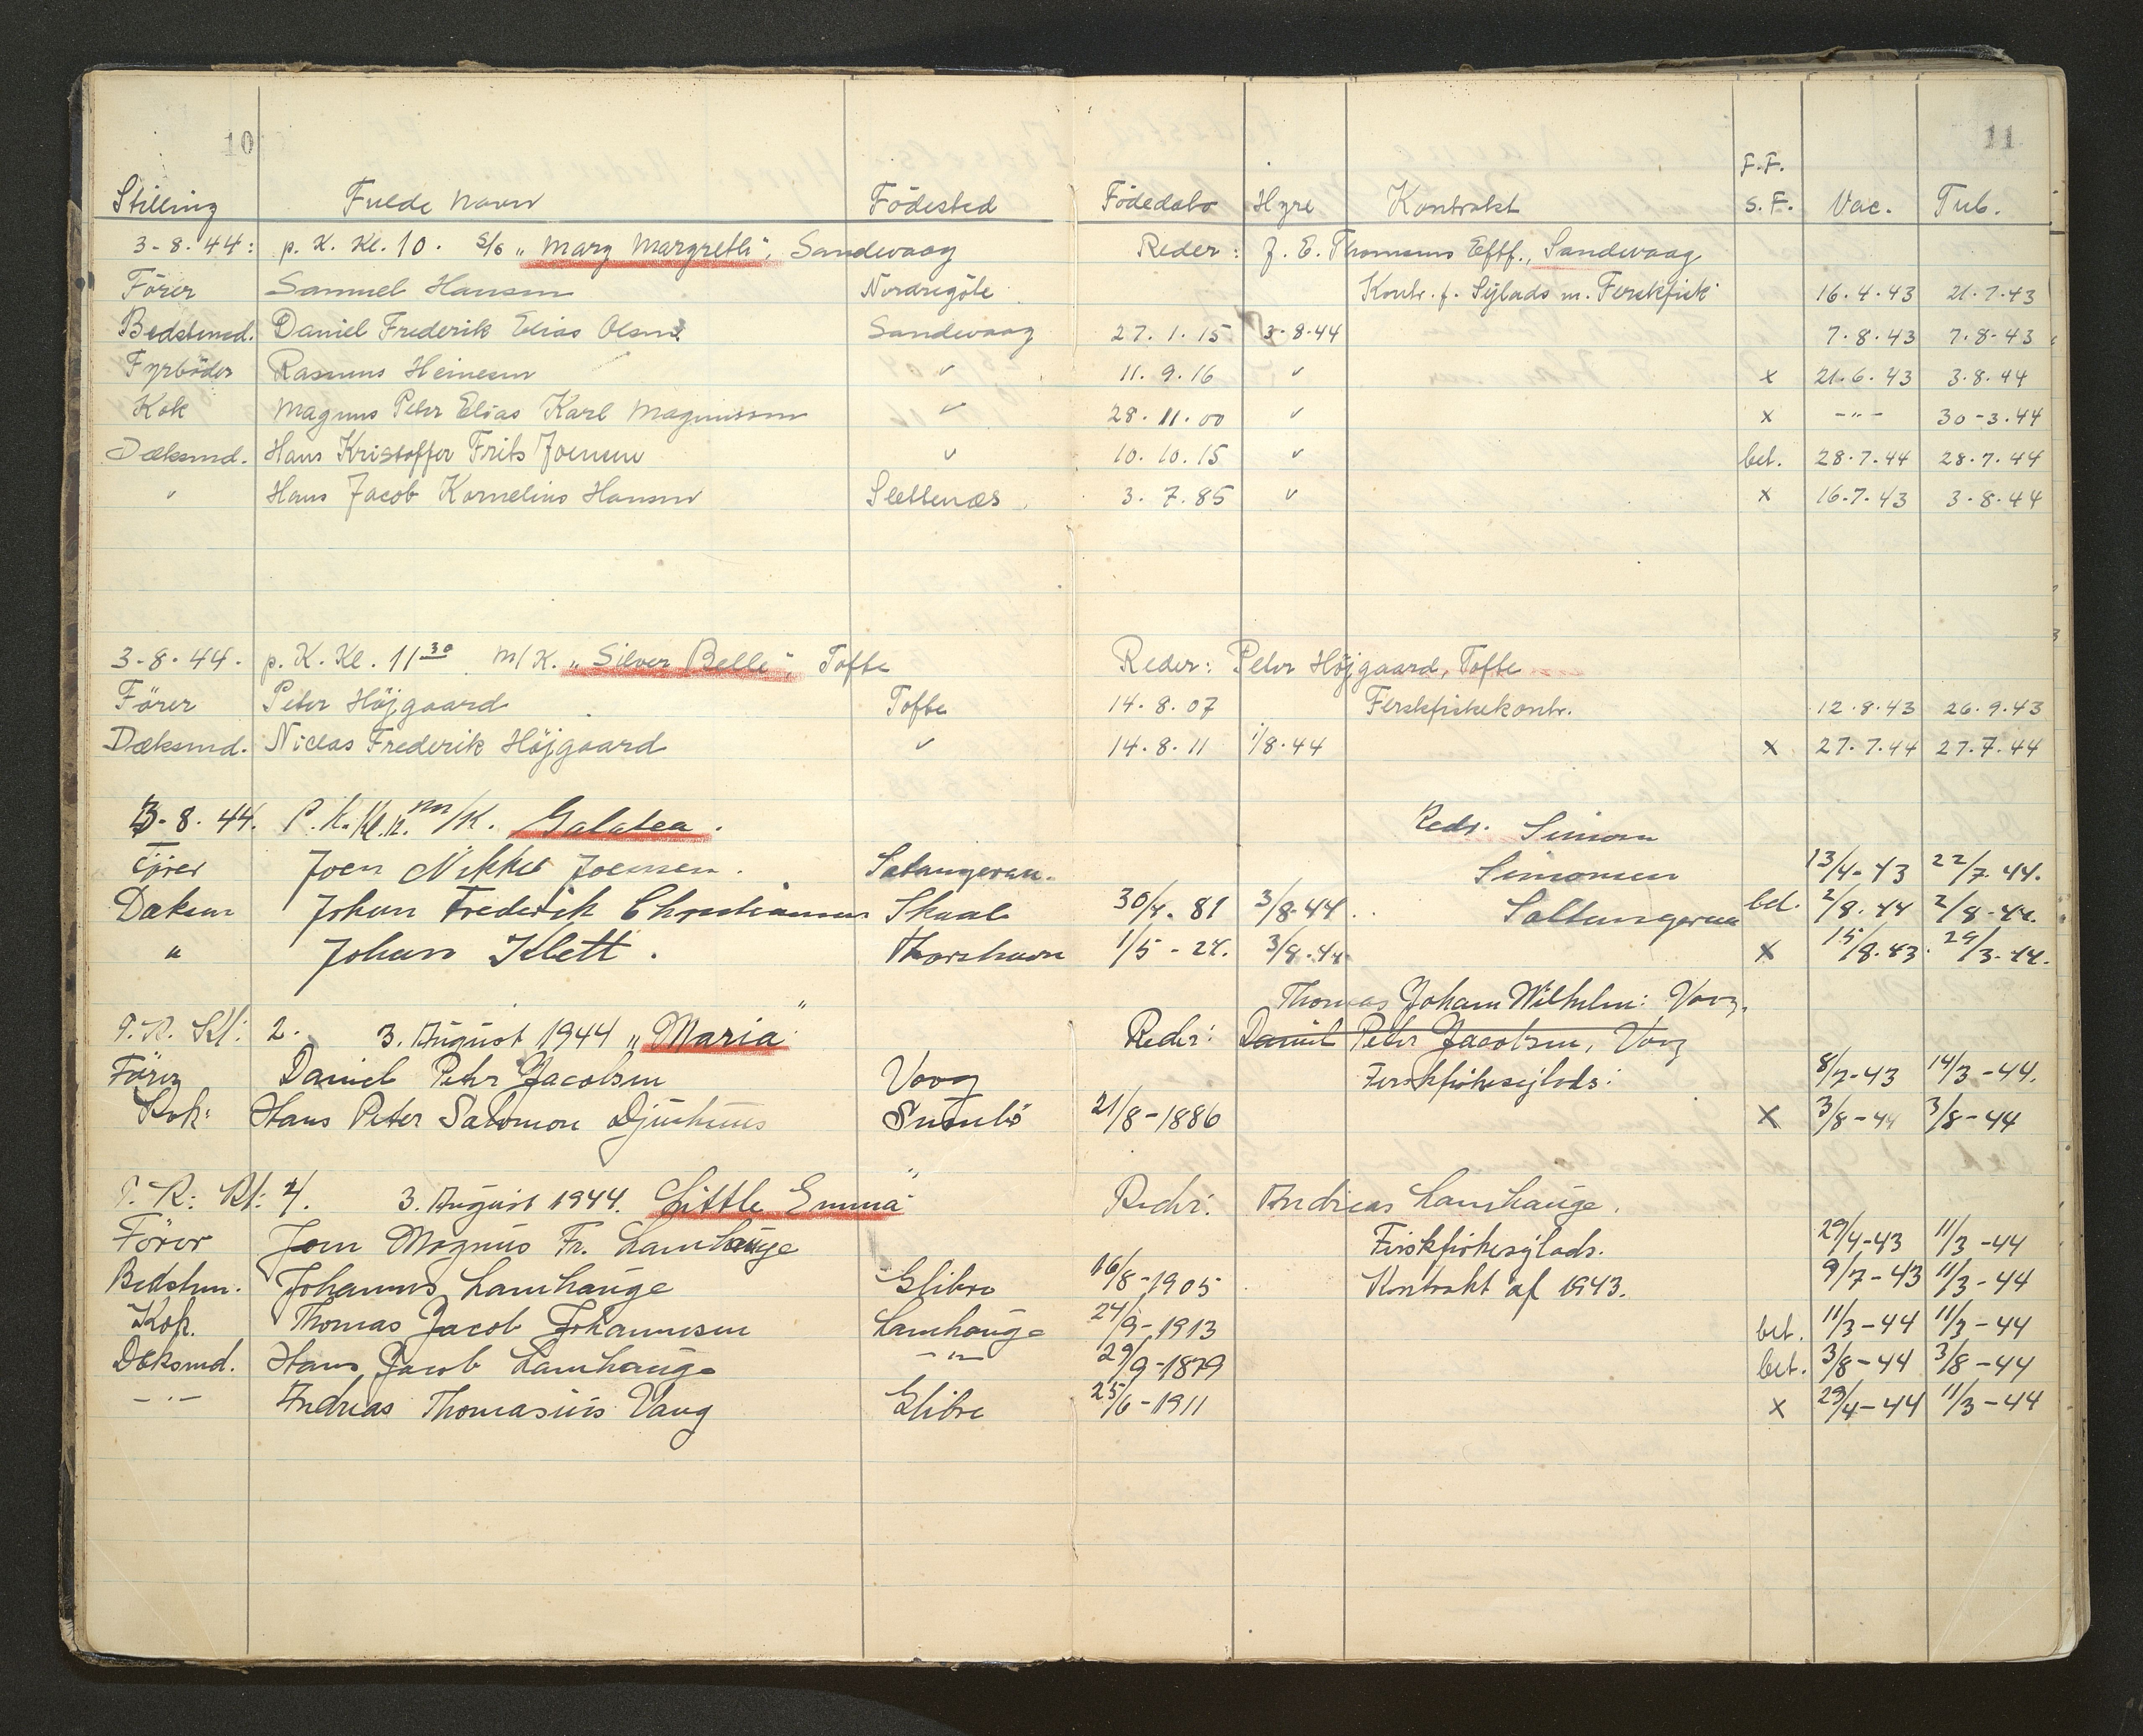 10 11
Stilling Fulde Navn Födested Födedato Hyre Kontrakt F.F. S.F. Vac. Tub.
3-8-44: p. K. Kl. 10. S/S „Mary Margreth", Sandevaag Reder: J. E. Thomsens Eftf., Sandevaag
Förer Samuel Hansen Nordregöte Kontr. f. Sejlads m. Ferskfisk 16.4.43 21.7.43
Bedstmd. Daniel Frederik Elias Olsen Sandevaag 27.1.15 3-8-44 7.8.43 7.8-43
Fyrböder Rasmus Heinesen ✓ 11.9.16 ✓ x 21.6.43 3.8.44
Kok Magnus Peter Elias Karl Magnussen ✓ 28.11.00 ✓ x -"- 30-3.44
Dæksmd. Hans Kristoffer Frits Joensen ✓ 10.10.15 ✓ bet. 28.7.44 28.7.44
✓ Hans Jacob Kornelius Hansen Slettenæs 3.7.85 ✓ x 16.7.43 3.8.44
3-8-44. p. K. Kl. 11 30 M/K. „Silver Belle", Tofte Reder: Peter Höjgaard, Tofte
Förer Peter Höjgaard Tofte 14.8.07 Ferskfiskekontr. 12.8.43 26.9.43
Dæksmd. Niclas Frederik Höjgaard ✓ 14.8.11 1/8.44 x 27.7.44 27.7.44
3-8.44. P. K. Kl. M/K. Galatea. Redr. Simon
Förer Joen Nikke Joensen. 13/4-43 22/7.44.
Simonsen
Dæksm Johan Frederik Christiansen Skaale 30/4.81 3/8.44. Saltangeraa bet. 2/8.44 2/8-44.
" Johan Klett. Thorshavn 1/5-24. 3/8.44 x 15/8.43. 29/3.44.
Thomas Joham Wilhelm: Vaag.
P. K. Kl: 2. 3. August 1944 „Maria" Reder: Daniel Peter Jacobsen, Vaag
Förer Daniel Peter Jacobsen Vaag Ferskfiskesejlads: 8/7-43 14/3-44.
Kok: Hans Peter Salomon Djurhuus Sumbö 21/8-1886 X 3/8-44 3/8-44
P. K: Kl: 4. 3. August 1944. „Little Emma" Reder: Andreas Lamhauge.
Förer Joen Magnus Fr. Lamhauge Ferskfiskesejlads. 29/4-43 11/3-44
Bedstm. Johannes Lamhauge Glibre 16/8-1905 Kontrakt af 1943. 9/7-43 11/3-44
Kok. Thomas Jacob Johannesen Lamhauge 24/9-1913 bet. 11/3-44 11/3-44
Dæksmd. Hans Jacob Lamhauge -"- 29/9-1879 bet. 3/8-44 3/8-44
-"- Andreas Thomasius Vang Glibre 25/6-1911 x 29/4-44 11/3-44